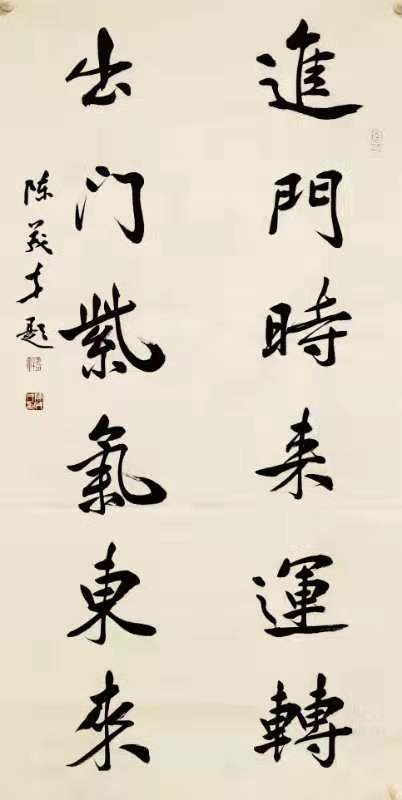 進門時来運轉
出门紫氣東來
陈義才题